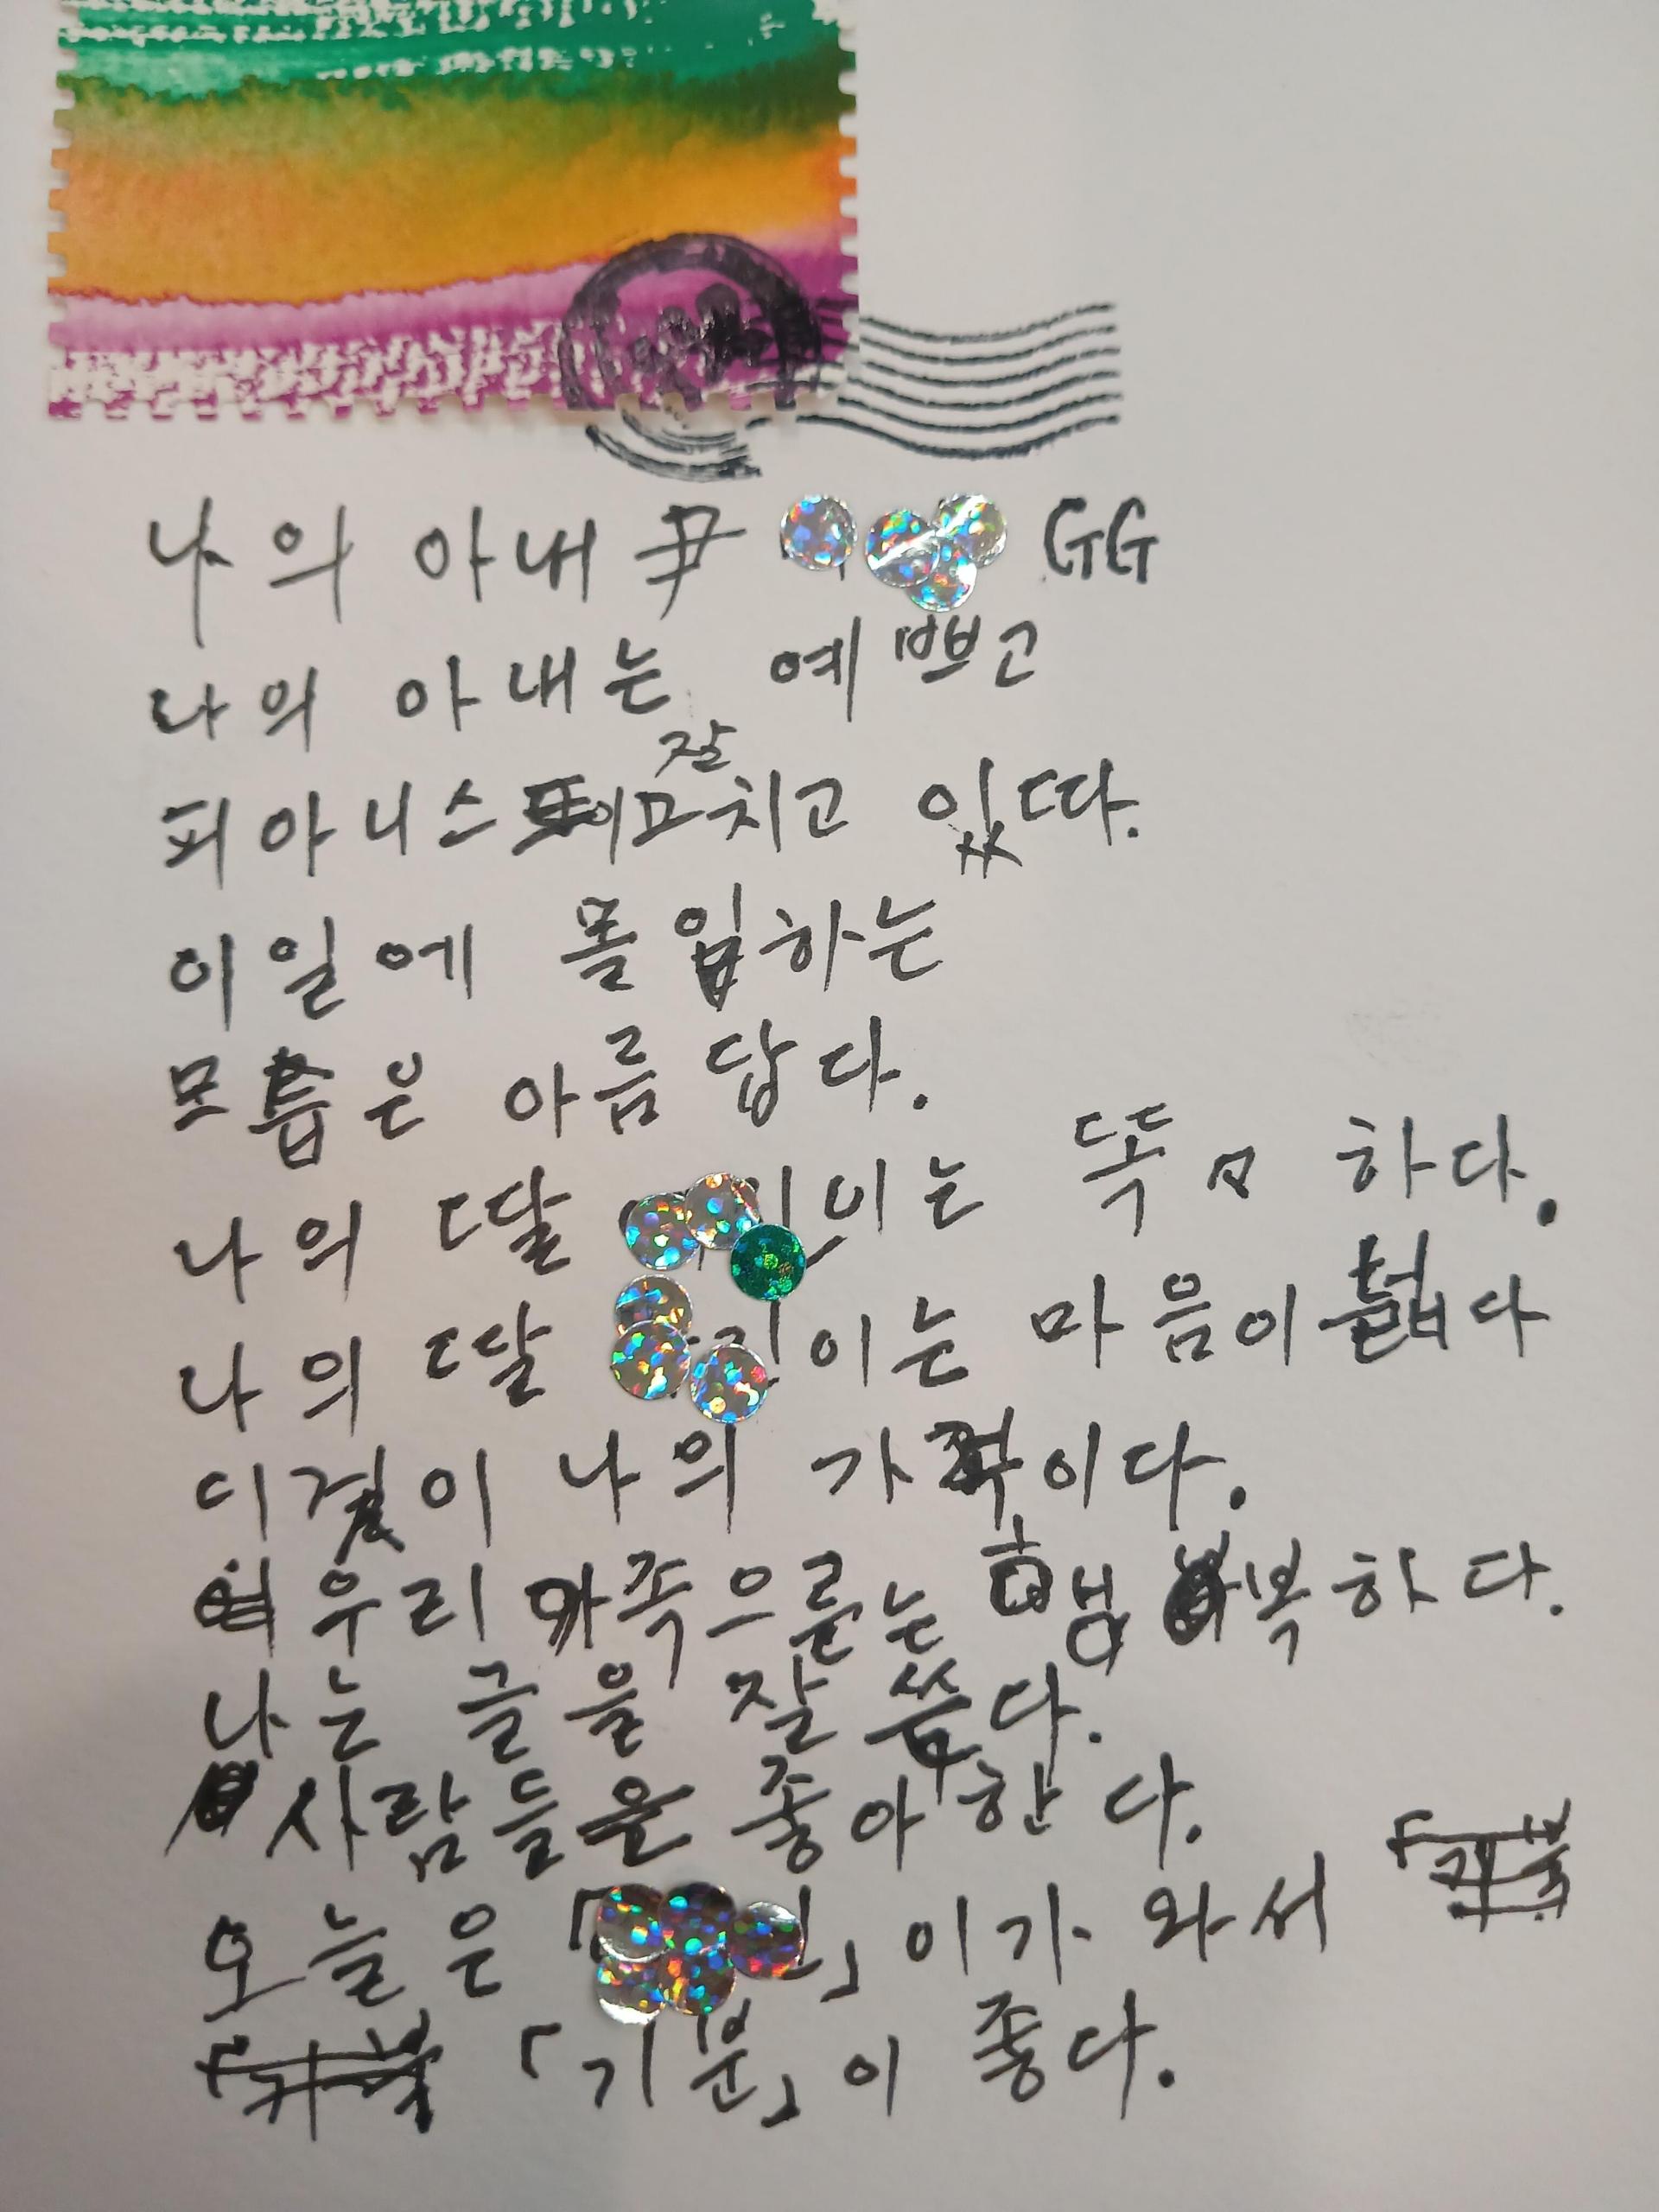 나의 아내 尹 GG
나의 아내는 예쁘고
잘
피아니스 치고 있따.
이일에 몰입하는
모습은 아름답다.
나의 딸 이는 똑々하다.
나의 딸 이는 마음이 넓다
이것이 나의 가족이다.
우리 가족으른는 행복하다.
나는 글을 잘 쓴다.
사람들을 좋아한다.
오늘은 「 」이가 와서
「기분」이 좋다.